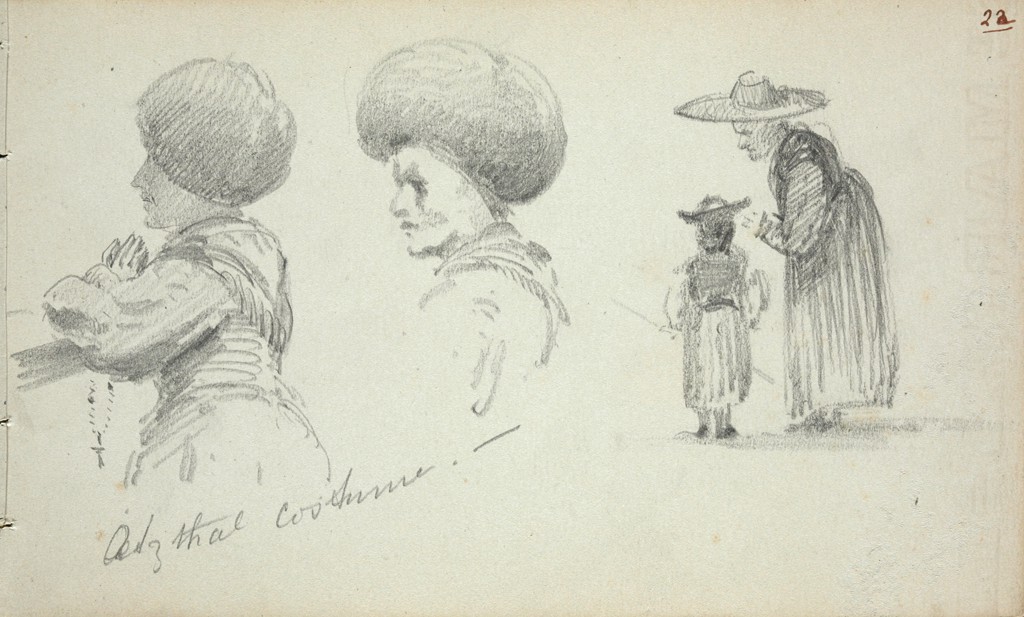 22
Oetzthal costume. —